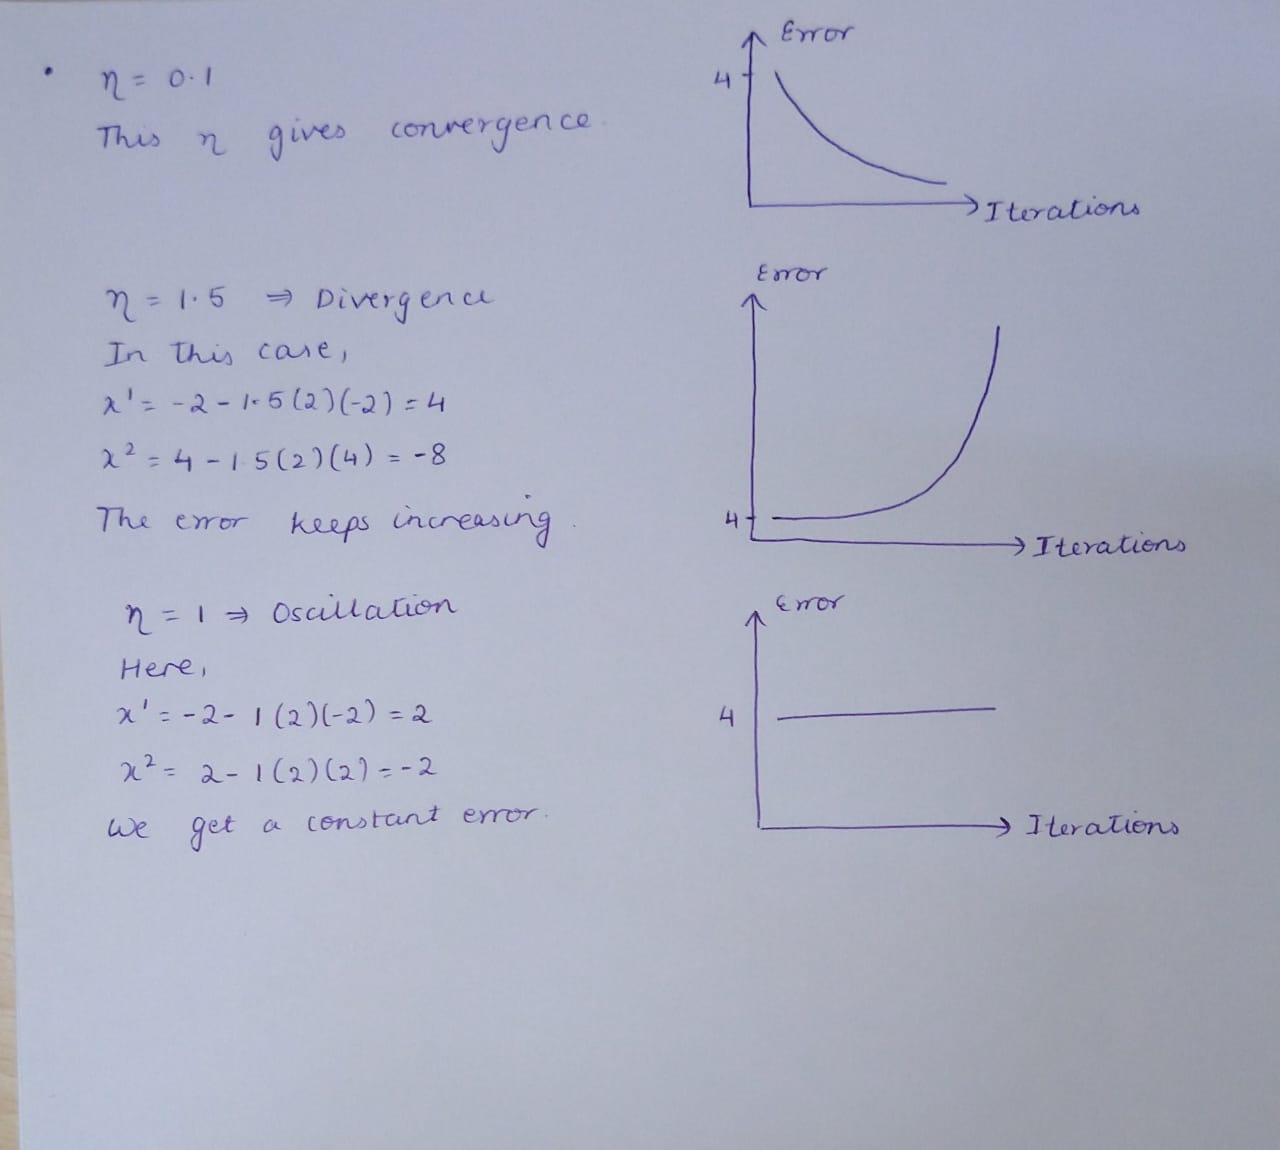 • η = 0.1
This η gives convergence.
Error
4
Iterations
η = 1.5 ⇒ Divergence
In this case,
x¹ = -2 - 1.5(2)(-2) = 4
x² = 4 - 1.5(2)(4) = -8
The error keeps increasing.
Error
4
Iterations
η = 1 ⇒ Oscillation
Here,
x¹ = -2 - 1(2)(-2) = 2
x² = 2 - 1(2)(2) = -2
We get a constant error.
Error
4
Iterations